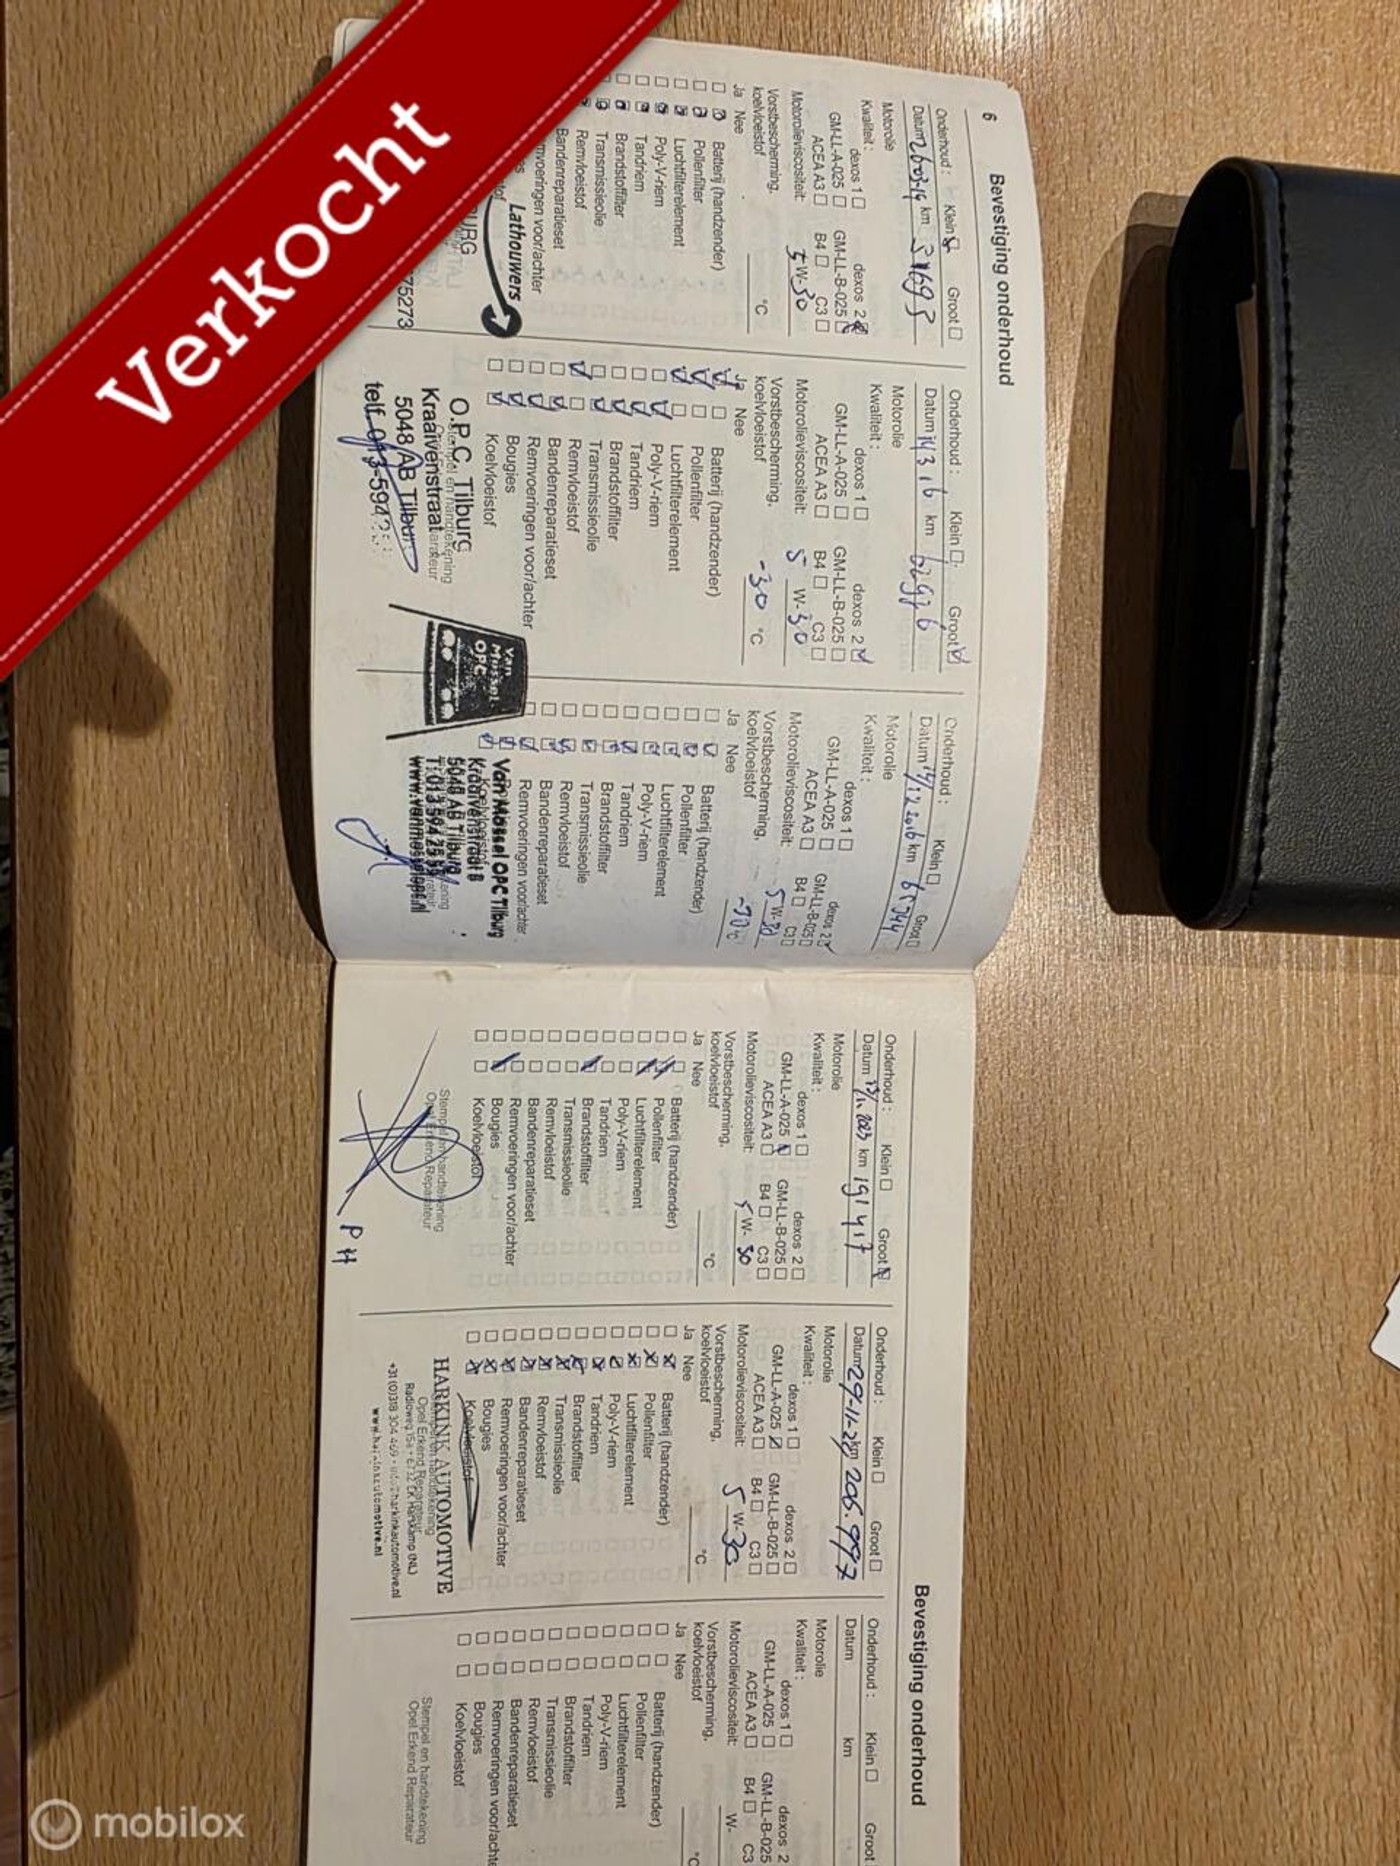 Verkocht
6
Bevestiging onderhoud
Onderhoud : Klein Groot
Datum 26-03-14 km 51693
Motorolie
Kwaliteit : dexos 1 dexos 2
GM-LL-A-025 GM-LL-B-025
ACEA A3 B4 C3
Motorolieviscositeit: 5 W-30
Vorstbescherming,
koelvloeistof °C
Ja Nee
Batterij (handzender)
Pollenfilter
Luchtfilterelement
Poly-V-riem
Tandriem
Brandstoffilter
Transmissieolie
Remvloeistof
Bandenreparatieset
mvoeringen voor/achter
Lathouwers
BURG
75273
Onderhoud : Klein Groot
Datum 14 3 16 km 62976
Motorolie
Kwaliteit : dexos 1 dexos 2
GM-LL-A-025 GM-LL-B-025
ACEA A3 B4 C3
Motorolieviscositeit: 5 W-30
Vorstbescherming,
koelvloeistof -30 °C
Ja Nee
Batterij (handzender)
Pollenfilter
Luchtfilterelement
Poly-V-riem
Tandriem
Brandstoffilter
Transmissieolie
Remvloeistof
Bandenreparatieset
Remvoeringen voor/achter
Bougies
Koelvloeistof
O.P.C. Tilburg
Kraaivenstraat
5048 AB Tilburg
telf. 013-5942
Onderhoud : Klein Groot
Datum km
Motorolie
Kwaliteit : dexos 1 dexos 2
GM-LL-A-025 GM-LL-B-025
ACEA A3 B4 C3
Motorolieviscositeit: 5 W-30
Vorstbescherming,
koelvloeistof
Ja Nee
Batterij (handzender)
Pollenfilter
Luchtfilterelement
Poly-V-riem
Tandriem
Brandstoffilter
Transmissieolie
Remvloeistof
Bandenreparatieset
Remvoeringen voor/achter
Van Mossel OPC
Van Mossel OPC Tilburg
Kraaivenstraat 8
5048 AB Tilburg
Onderhoud : Klein Groot
Datum km 191417
Motorolie
Kwaliteit : dexos 1 dexos 2
GM-LL-A-025 GM-LL-B-025
ACEA A3 B4 C3
Motorolieviscositeit: 5 W-30
Vorstbescherming,
koelvloeistof °C
Ja Nee
Batterij (handzender)
Pollenfilter
Luchtfilterelement
Poly-V-riem
Tandriem
Brandstoffilter
Transmissieolie
Remvloeistof
Bandenreparatieset
Remvoeringen voor/achter
Bougies
Koelvloeistof
Stempel en handtekening
Opel Erkend Reparateur
PH
Onderhoud : Klein Groot
Datum 29-11-2 km 206.997
Motorolie
Kwaliteit : dexos 1 dexos 2
GM-LL-A-025 GM-LL-B-025
ACEA A3 B4 C3
Motorolieviscositeit: 5 W-30
Vorstbescherming,
koelvloeistof °C
Ja Nee
Batterij (handzender)
Pollenfilter
Luchtfilterelement
Poly-V-riem
Tandriem
Brandstoffilter
Transmissieolie
Remvloeistof
Bandenreparatieset
Remvoeringen voor/achter
Bougies
Koelvloeistof
HARKINK AUTOMOTIVE
Opel Erkend Reparateur
www.harkinkautomotive.nl
Bevestiging onderhoud
Onderhoud : Klein Groot
Datum km
Motorolie
Kwaliteit : dexos 1 dexos 2
GM-LL-A-025 GM-LL-B-025
ACEA A3 B4 C3
Motorolieviscositeit: W-
Vorstbescherming,
koelvloeistof °C
Ja Nee
Batterij (handzender)
Pollenfilter
Luchtfilterelement
Poly-V-riem
Tandriem
Brandstoffilter
Transmissieolie
Remvloeistof
Bandenreparatieset
Remvoeringen voor/achte
Bougies
Koelvloeistof
Stempel en handtekening
Opel Erkend Reparateur
mobilox